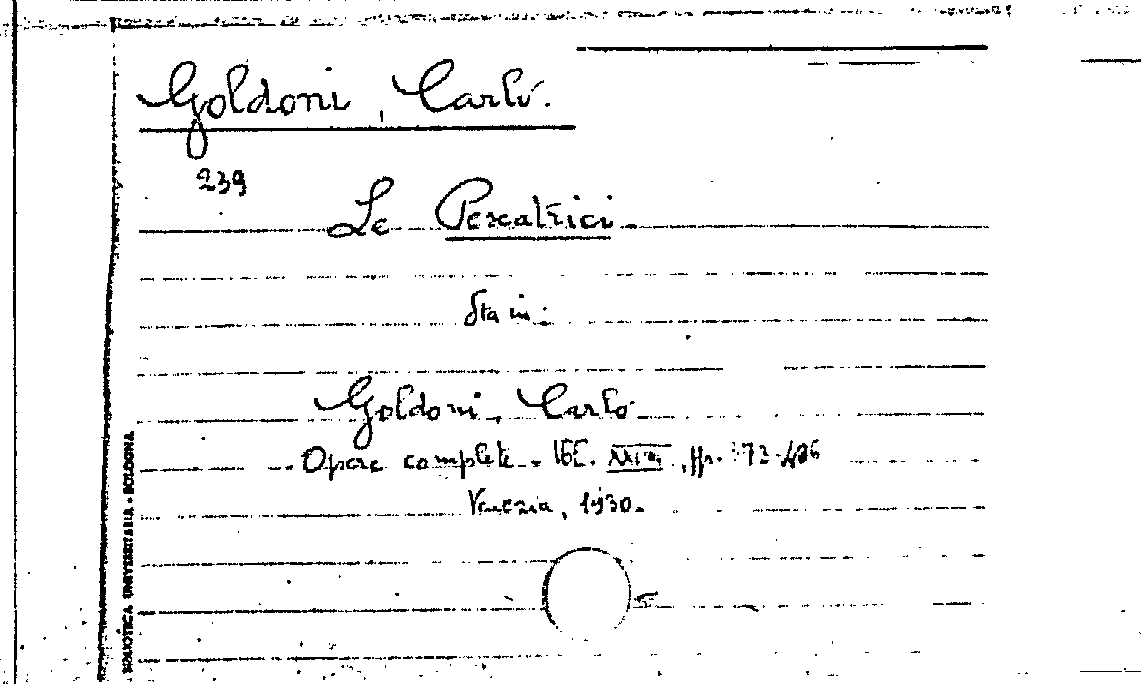 Goldoni, Carlo.
239
Le Pescatrici
Sta in:
Goldoni, Carlo
Opere complete. Vol.
Venezia, 1930.
BIBLIOTECA UNIVERSITARIA - BOLOGNA